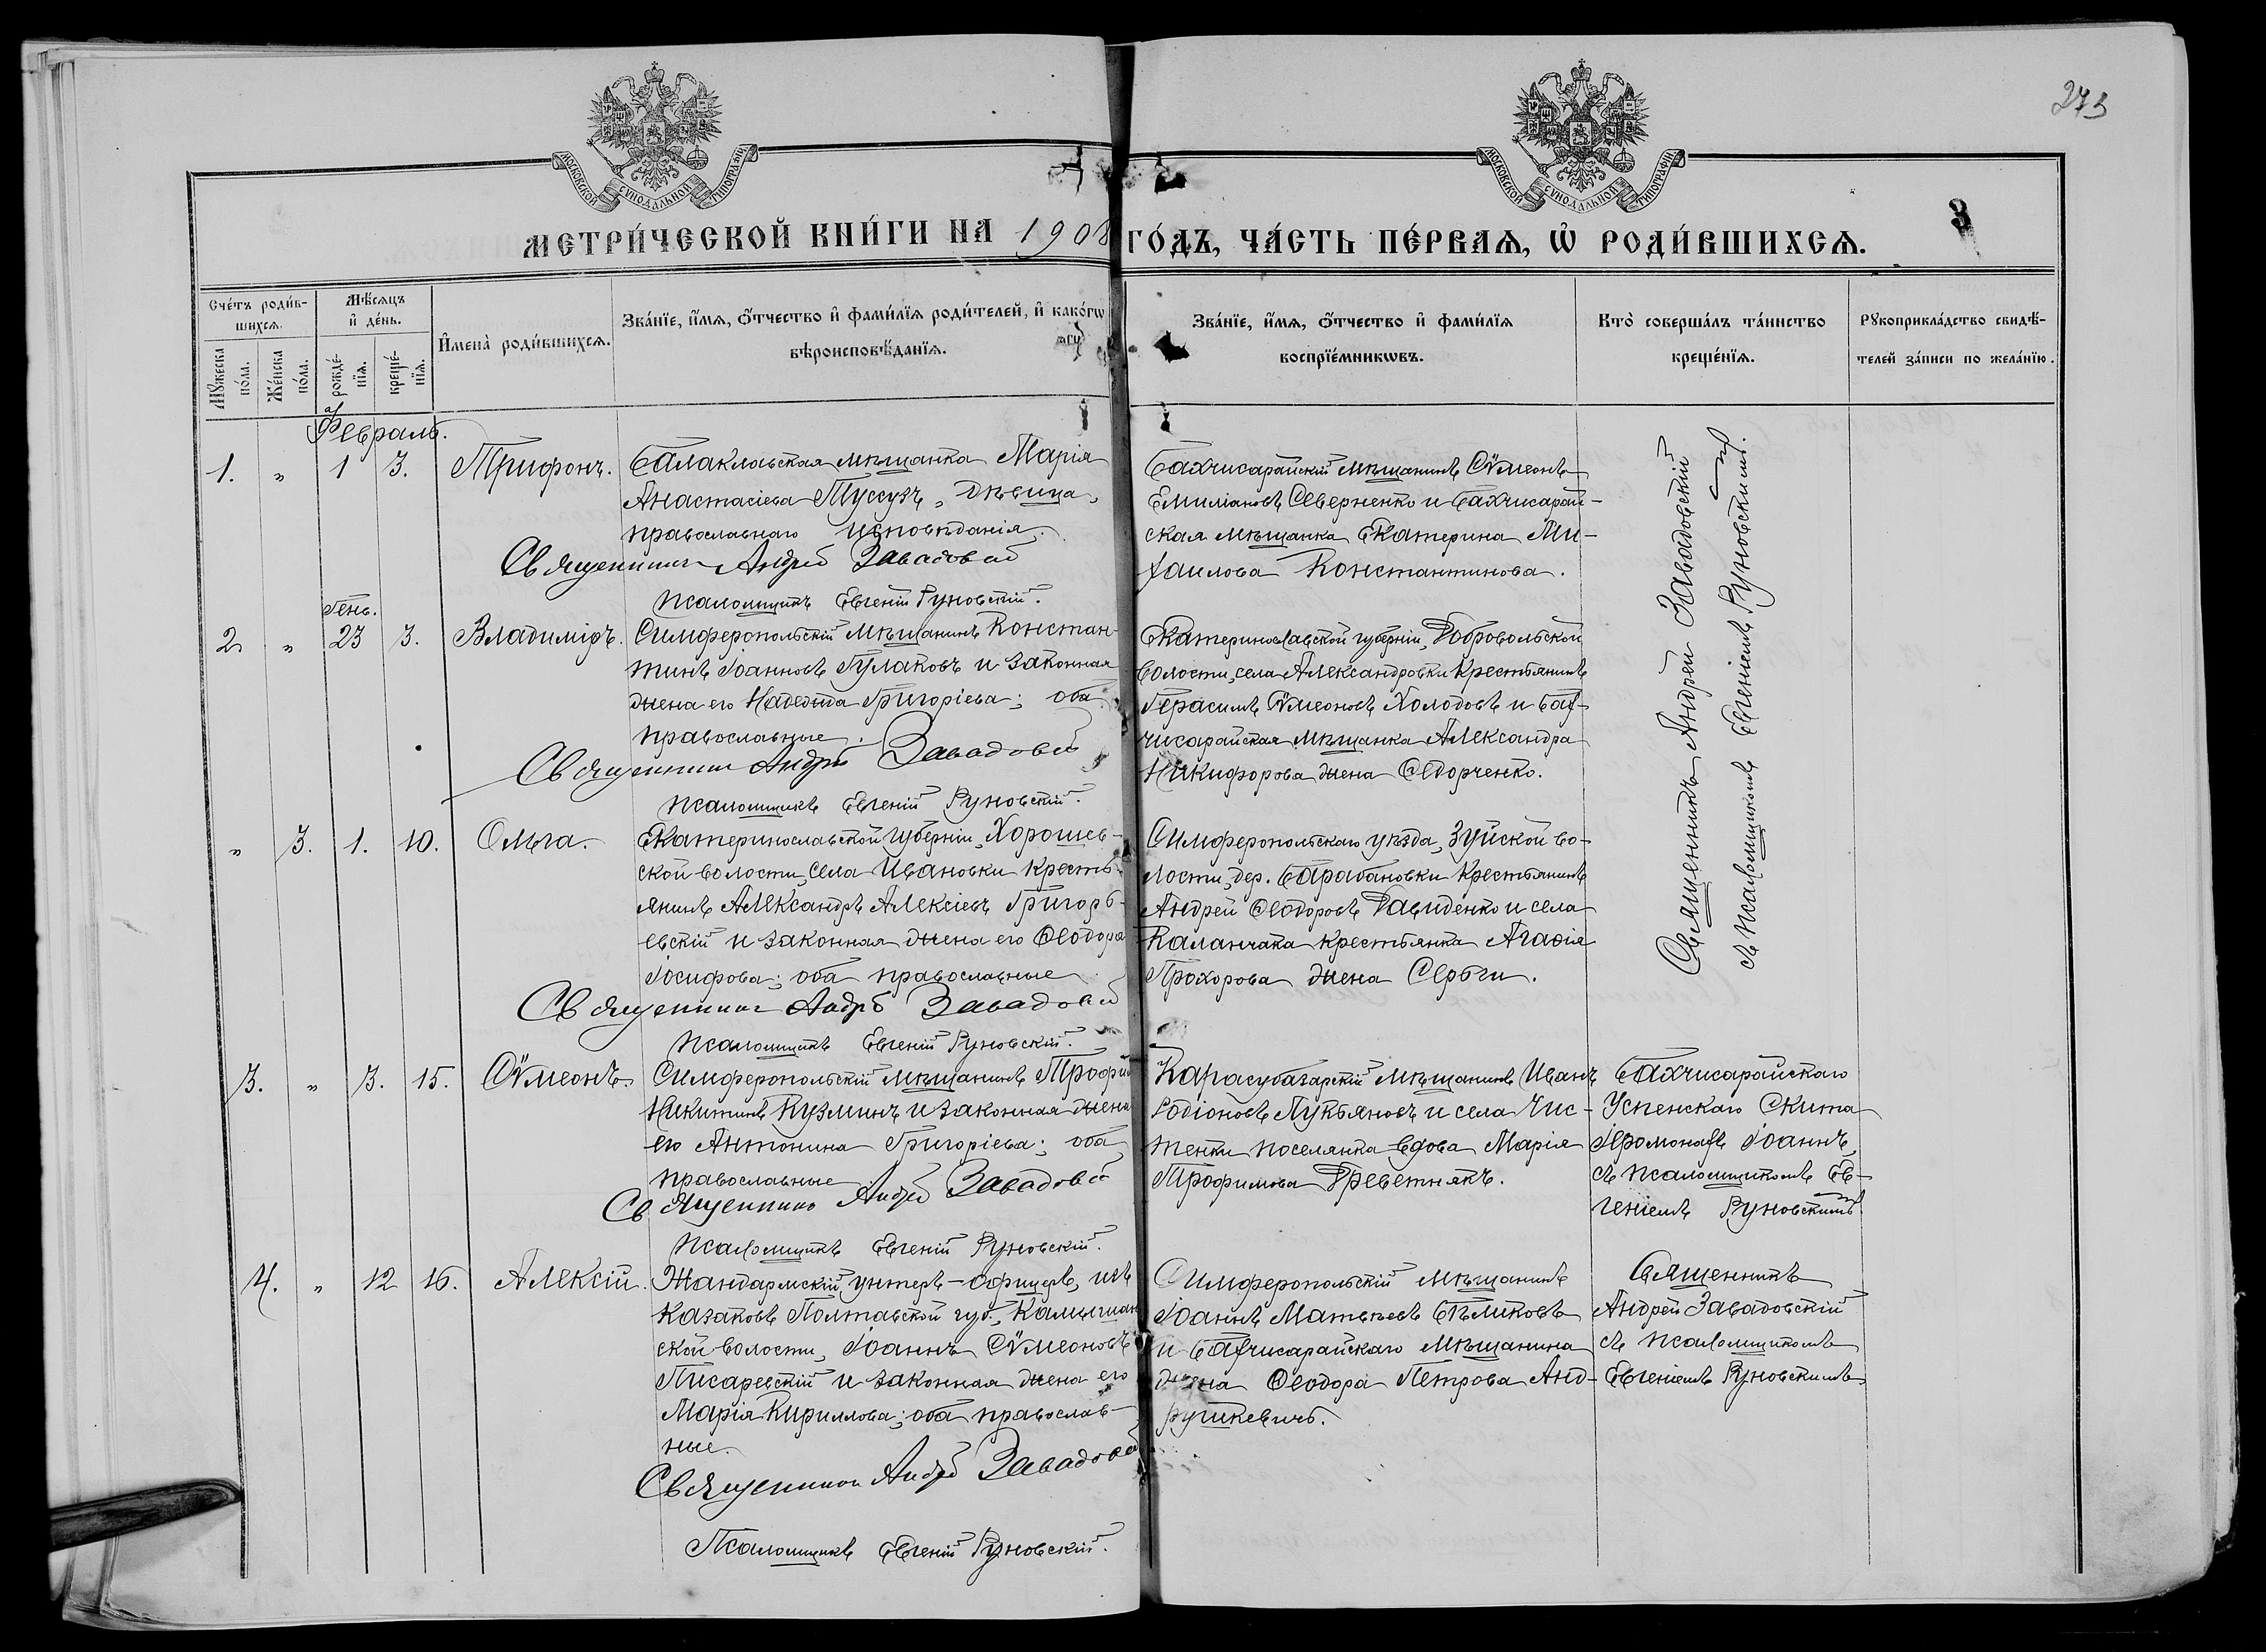 273
МОСКОВСКОЙ СУНОДАЛЬНОЙ ТИПОГРАФІИ.
МОСКОВСКОЙ СУНОДАЛЬНОЙ ТИПОГРАФІИ.
МЕТРИ́ЧЕСКОЙ КНИ́ГИ НА 1908 ГО́ДЪ, ЧА́СТЬ ПЕ́РВАѦ, Ѡ РОДИ́ВШИХСѦ.
3
Сче́тъ роди́в-
шихсѧ.
Мѣ́сѧцъ
и де́нь.
Мꙋжеска по́ла.
Же́нска по́ла.
рожде́-
нїѧ.
креще́-
нїѧ.
Имена̀ роди́вшихсѧ.
Зва́нїе, и́мѧ, о́тчество и фами́лїѧ роди́телей, и како́гѡ
вѣроисповѣ́данїѧ.
Зва́нїе, и́мѧ, о́тчество и фами́лїѧ
воспрїе́мникѡвъ.
Кто̀ соверша́лъ та́инство
креще́нїѧ.
Рꙋкоприкла́дство свидѣ́-
телей за́писи по жела́нїю.
Февраль.
1. „ 1 3. Трифонъ.
Балаклавская мѣщанка Марія
Анастасіева Туссузъ, дѣвица,
православнаго исповѣданія.
Священникъ Андрей Завадовскій
Псаломщикъ Евгеній Руновскій.
Бахчисарайскій мѣщанинъ Сѵмеонъ
Емиліановъ Северненко и Бахчисарай-
ская мѣщанка Екатерина Ми-
хаилова Константинова.
Священникъ Андрей Завадовскій
съ псаломщикомъ Евгеніемъ Руновскимъ.
Генв.
2 „ 23 3. Владиміръ.
Симферопольскій мѣщанинъ Констан-
тинъ Іоанновъ Гулаковъ и законная
жена его Надежда Григоріева; оба
православные.
Священникъ Андрей Завадовскій
Псаломщикъ Евгеній Руновскій.
Екатеринославской губерніи, Добровольской
волости, села Александровки крестьянинъ
Герасимъ Сѵмеоновъ Холодовъ и Бах-
чисарайская мѣщанка Александра
Никифорова жена Ѳедорченко.
„ 3. 1. 10. Ольга.
Екатеринославской губерніи, Хорошев-
ской волости, села Ивановки кресть-
янинъ Александръ Алексіевъ Григорь-
евскій и законная жена его Ѳеодора
Іосифова; оба православные
Священникъ Андрей Завадовскій
Псаломщикъ Евгеній Руновскій.
Симферопольскаго уѣзда, Зуйской во-
лости, дер. Барабановки крестьянинъ
Андрей Ѳеодоровъ Давиденко и села
Каланчака крестьянка Агаѳія
Прохорова жена Сербги.
3. „ 3. 15. Сѵмеонъ.
Симферопольскій мѣщанинъ Трофим
Никитинъ Кузминъ и законная жена
его Антонина Григоріева; оба
православные
Священникъ Андрей Завадовскій
Псаломщикъ Евгеній Руновскій.
Карасубазарскій мѣщанинъ Иванъ
Родіоновъ Лукьяновъ и села Чис-
тенки поселянка вдова Марія
Трофимова Гребетнякъ.
Бахчисарайскаго
Успенскаго Скита
Іеромонахъ Іоаннъ,
съ псаломщикомъ Ев-
геніемъ Руновскимъ.
4. „ 12 16. Алексій.
Жандармскій унтеръ-офицеръ, изъ
казаковъ Полтавской губ., Камышан
ской волости, Іоаннъ Сѵмеоновъ
Писаревскій и законная жена его
Марія Кириллова; оба православ-
ные.
Священникъ Андрей Завадовскій
Псаломщикъ Евгеній Руновскій.
Симферопольскій мѣщанинъ
Іоаннъ Матвѣевъ Бѣликовъ
и Бахчисарайскаго мѣщанина
жена Ѳеодора Петрова Анд-
рушкевичъ.
Священникъ
Андрей Завадовскій
съ псаломщикомъ
Евгеніемъ Руновскимъ.